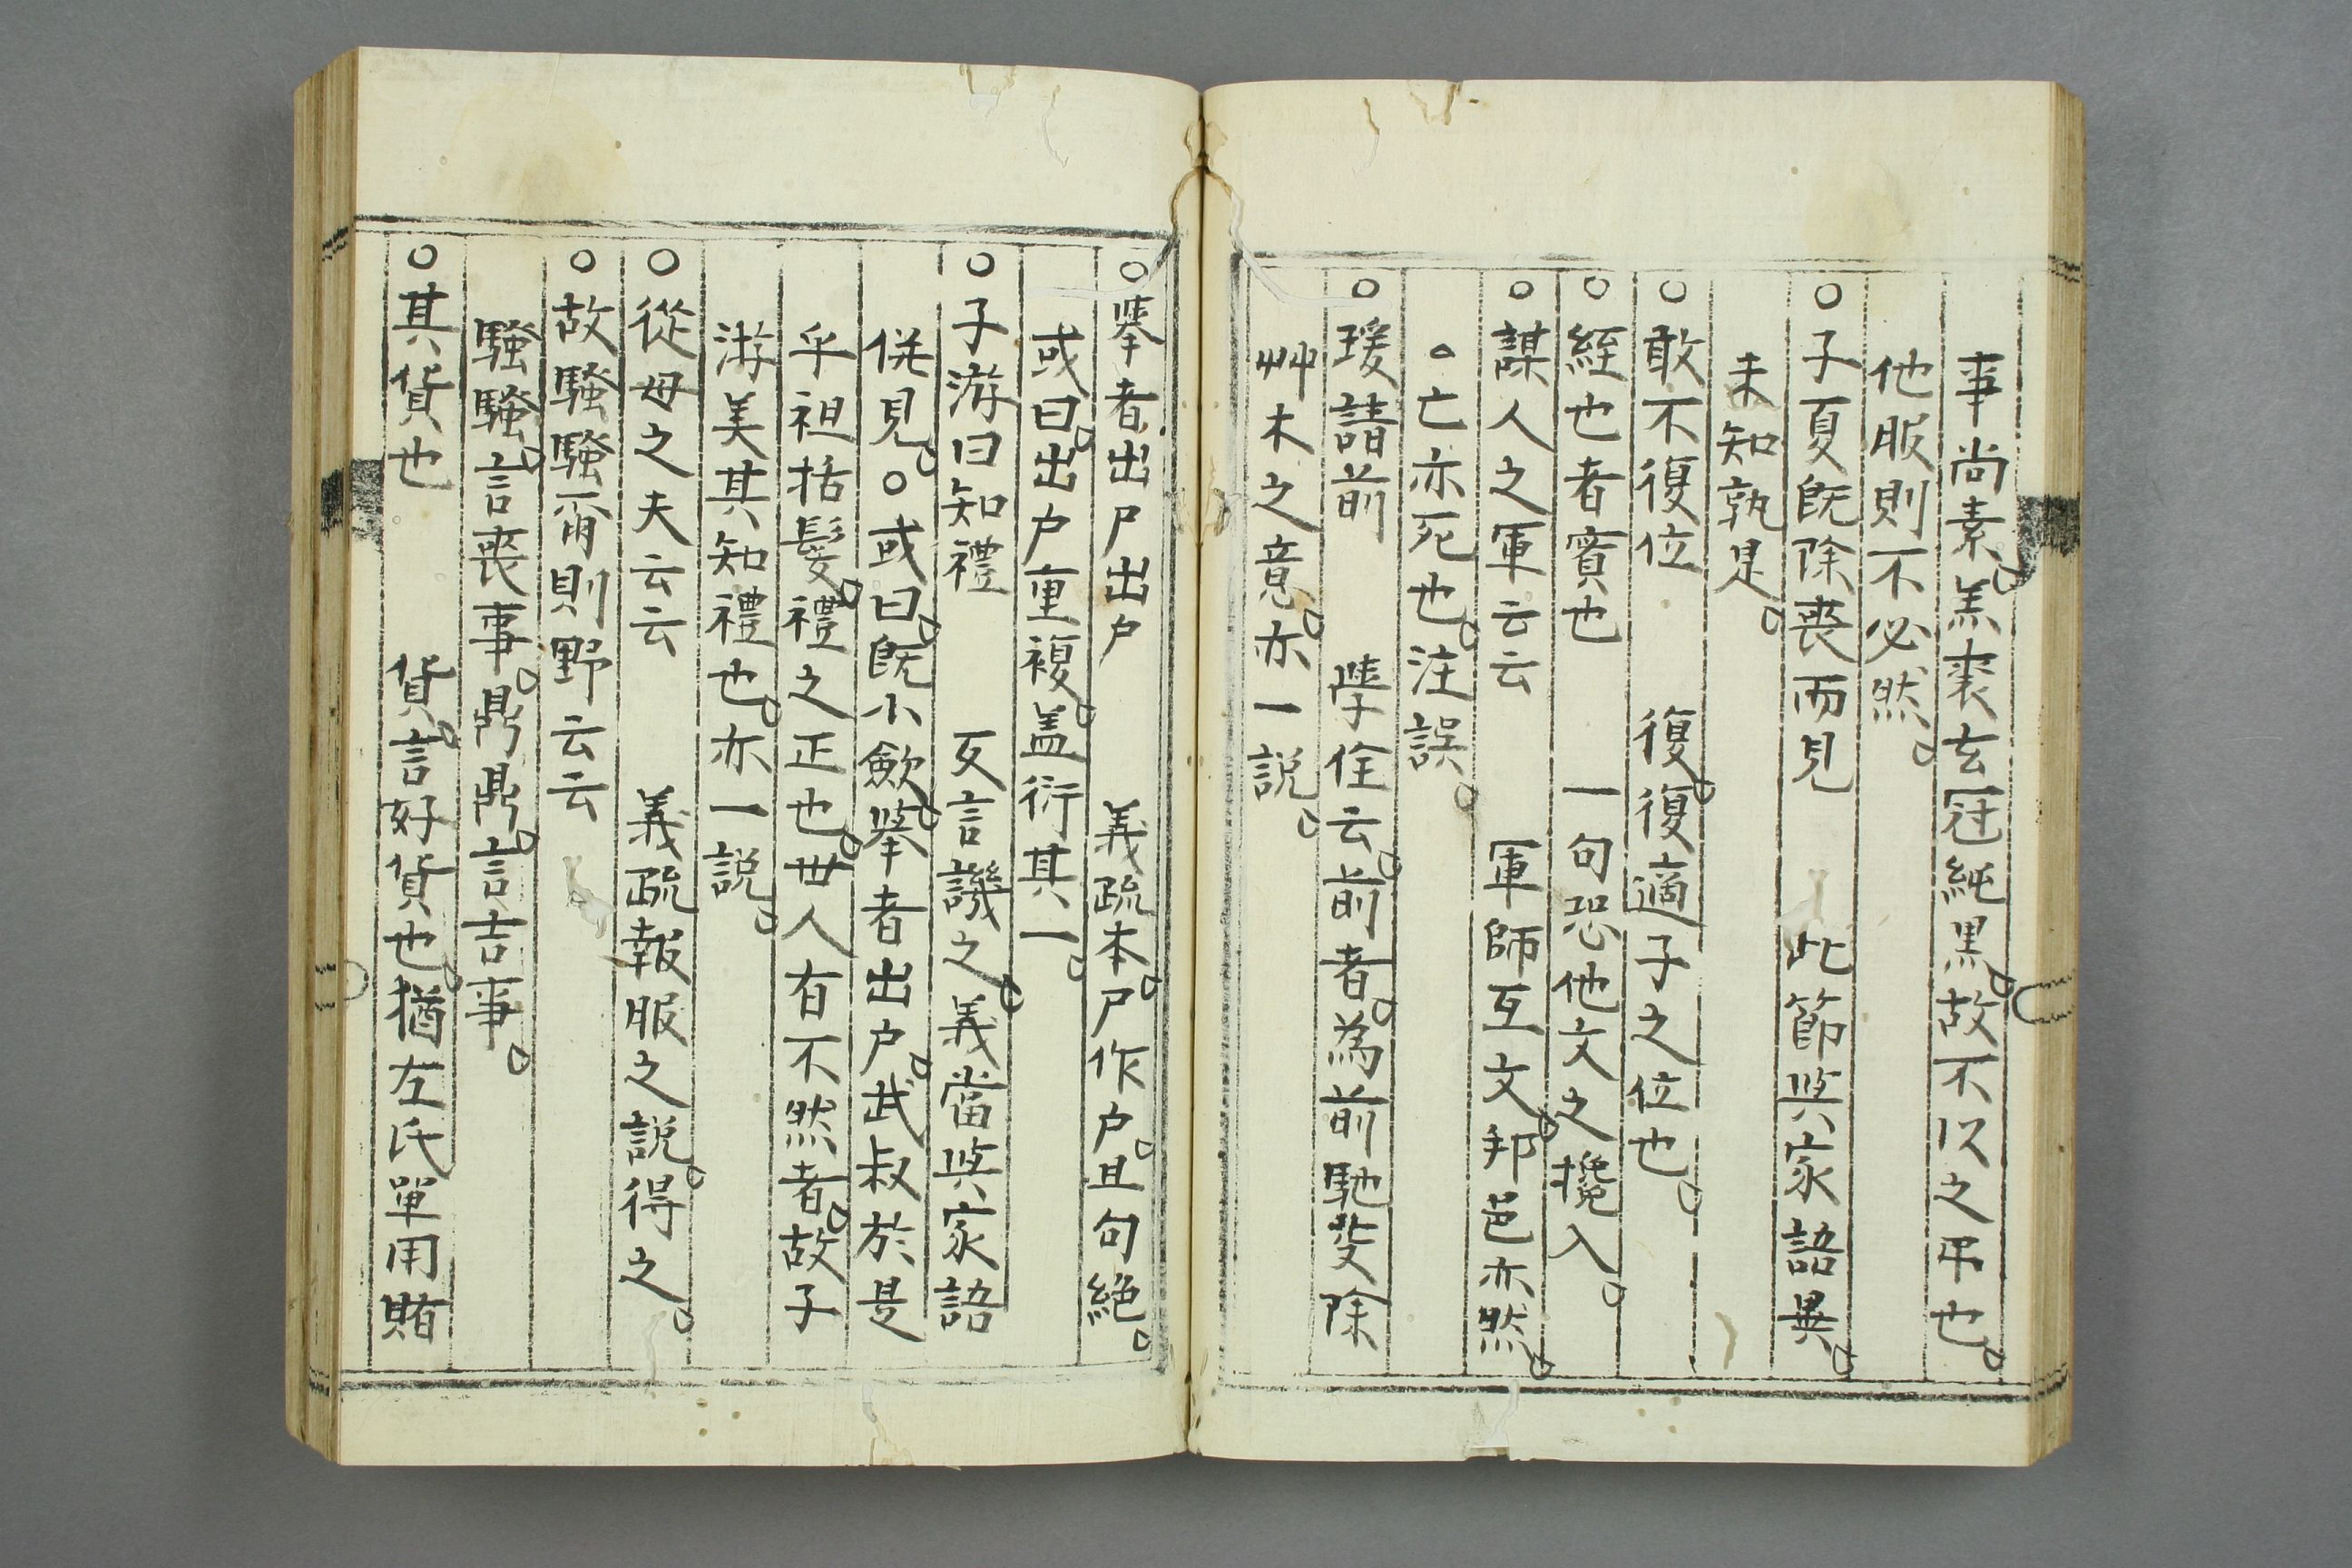 事尚素。羔裘玄冠純黒。故不以之弔也。
他服則不必然。
○子夏既除喪而見　此節與家語異。
未知孰是。
○敢不復位　復。復適子之位也。
○絰也者實也　一句恐他文之攙入。
○謀人之軍云云　軍師互文。邦邑亦然
○亡亦死也。注誤。
○瑗請前　陸佃云。前者。為前馳芟除
艸木之意。亦一説。
○擧者出尸出户　義疏本。尸作户。且句絶。
或曰。出户重複。盖衍其一。
○子游曰知禮　反言譏之。義當與家語
併見。○或曰。既小歛。擧者出户。武叔於是
乎袒括髮。禮之正也。世人有不然者。故子
游美其知禮也。亦一説。
○從母之夫云云　義疏報服之説。得之。
○故騷騷甭則野云云
騷騷。言喪事。鼎鼎。言吉事。
○其貨也　貨。言好貨也。猶左氏單用賄